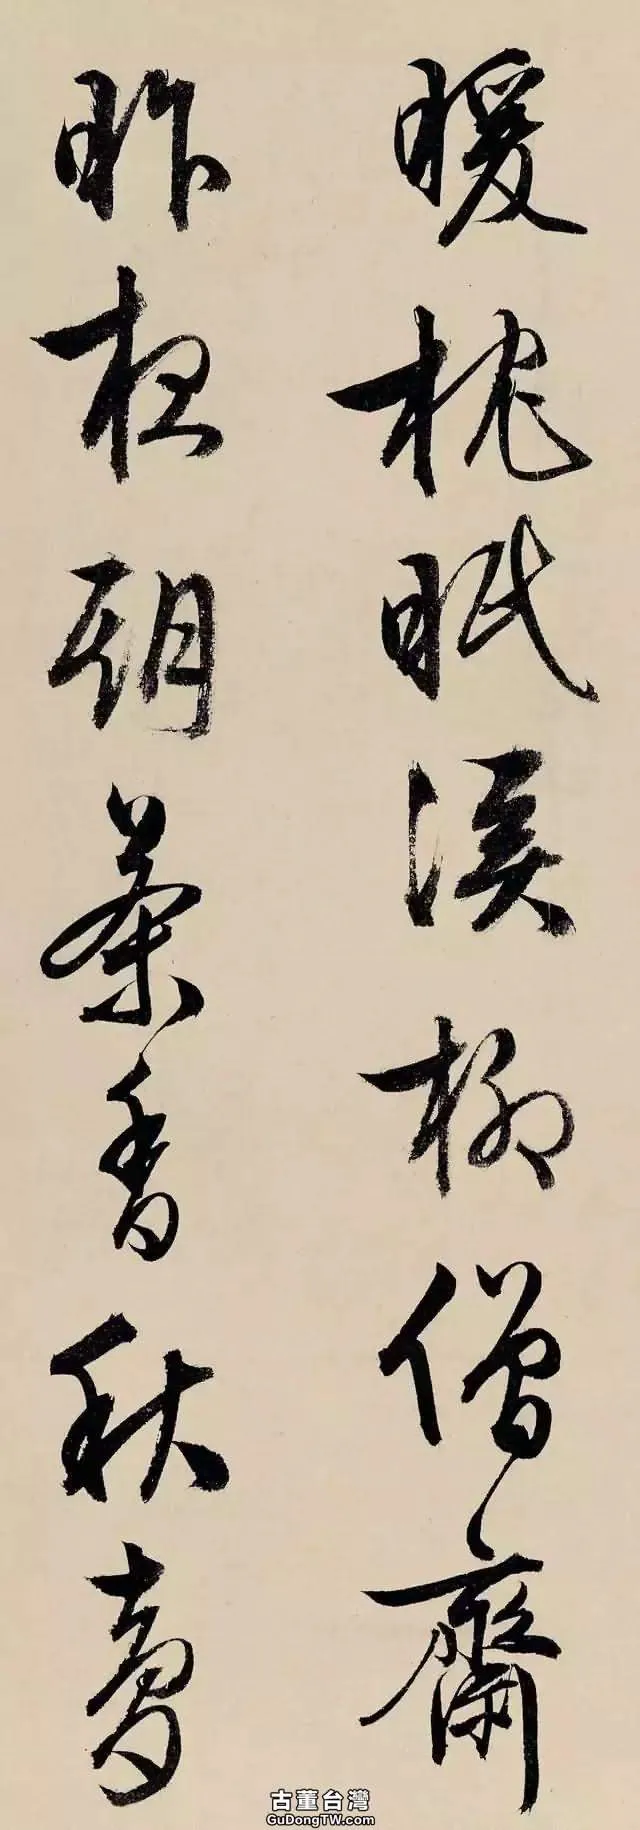 暖枕眠溪柳僧齋
昨夜期茶香秋夢
古董台灣
GuDongTW.com